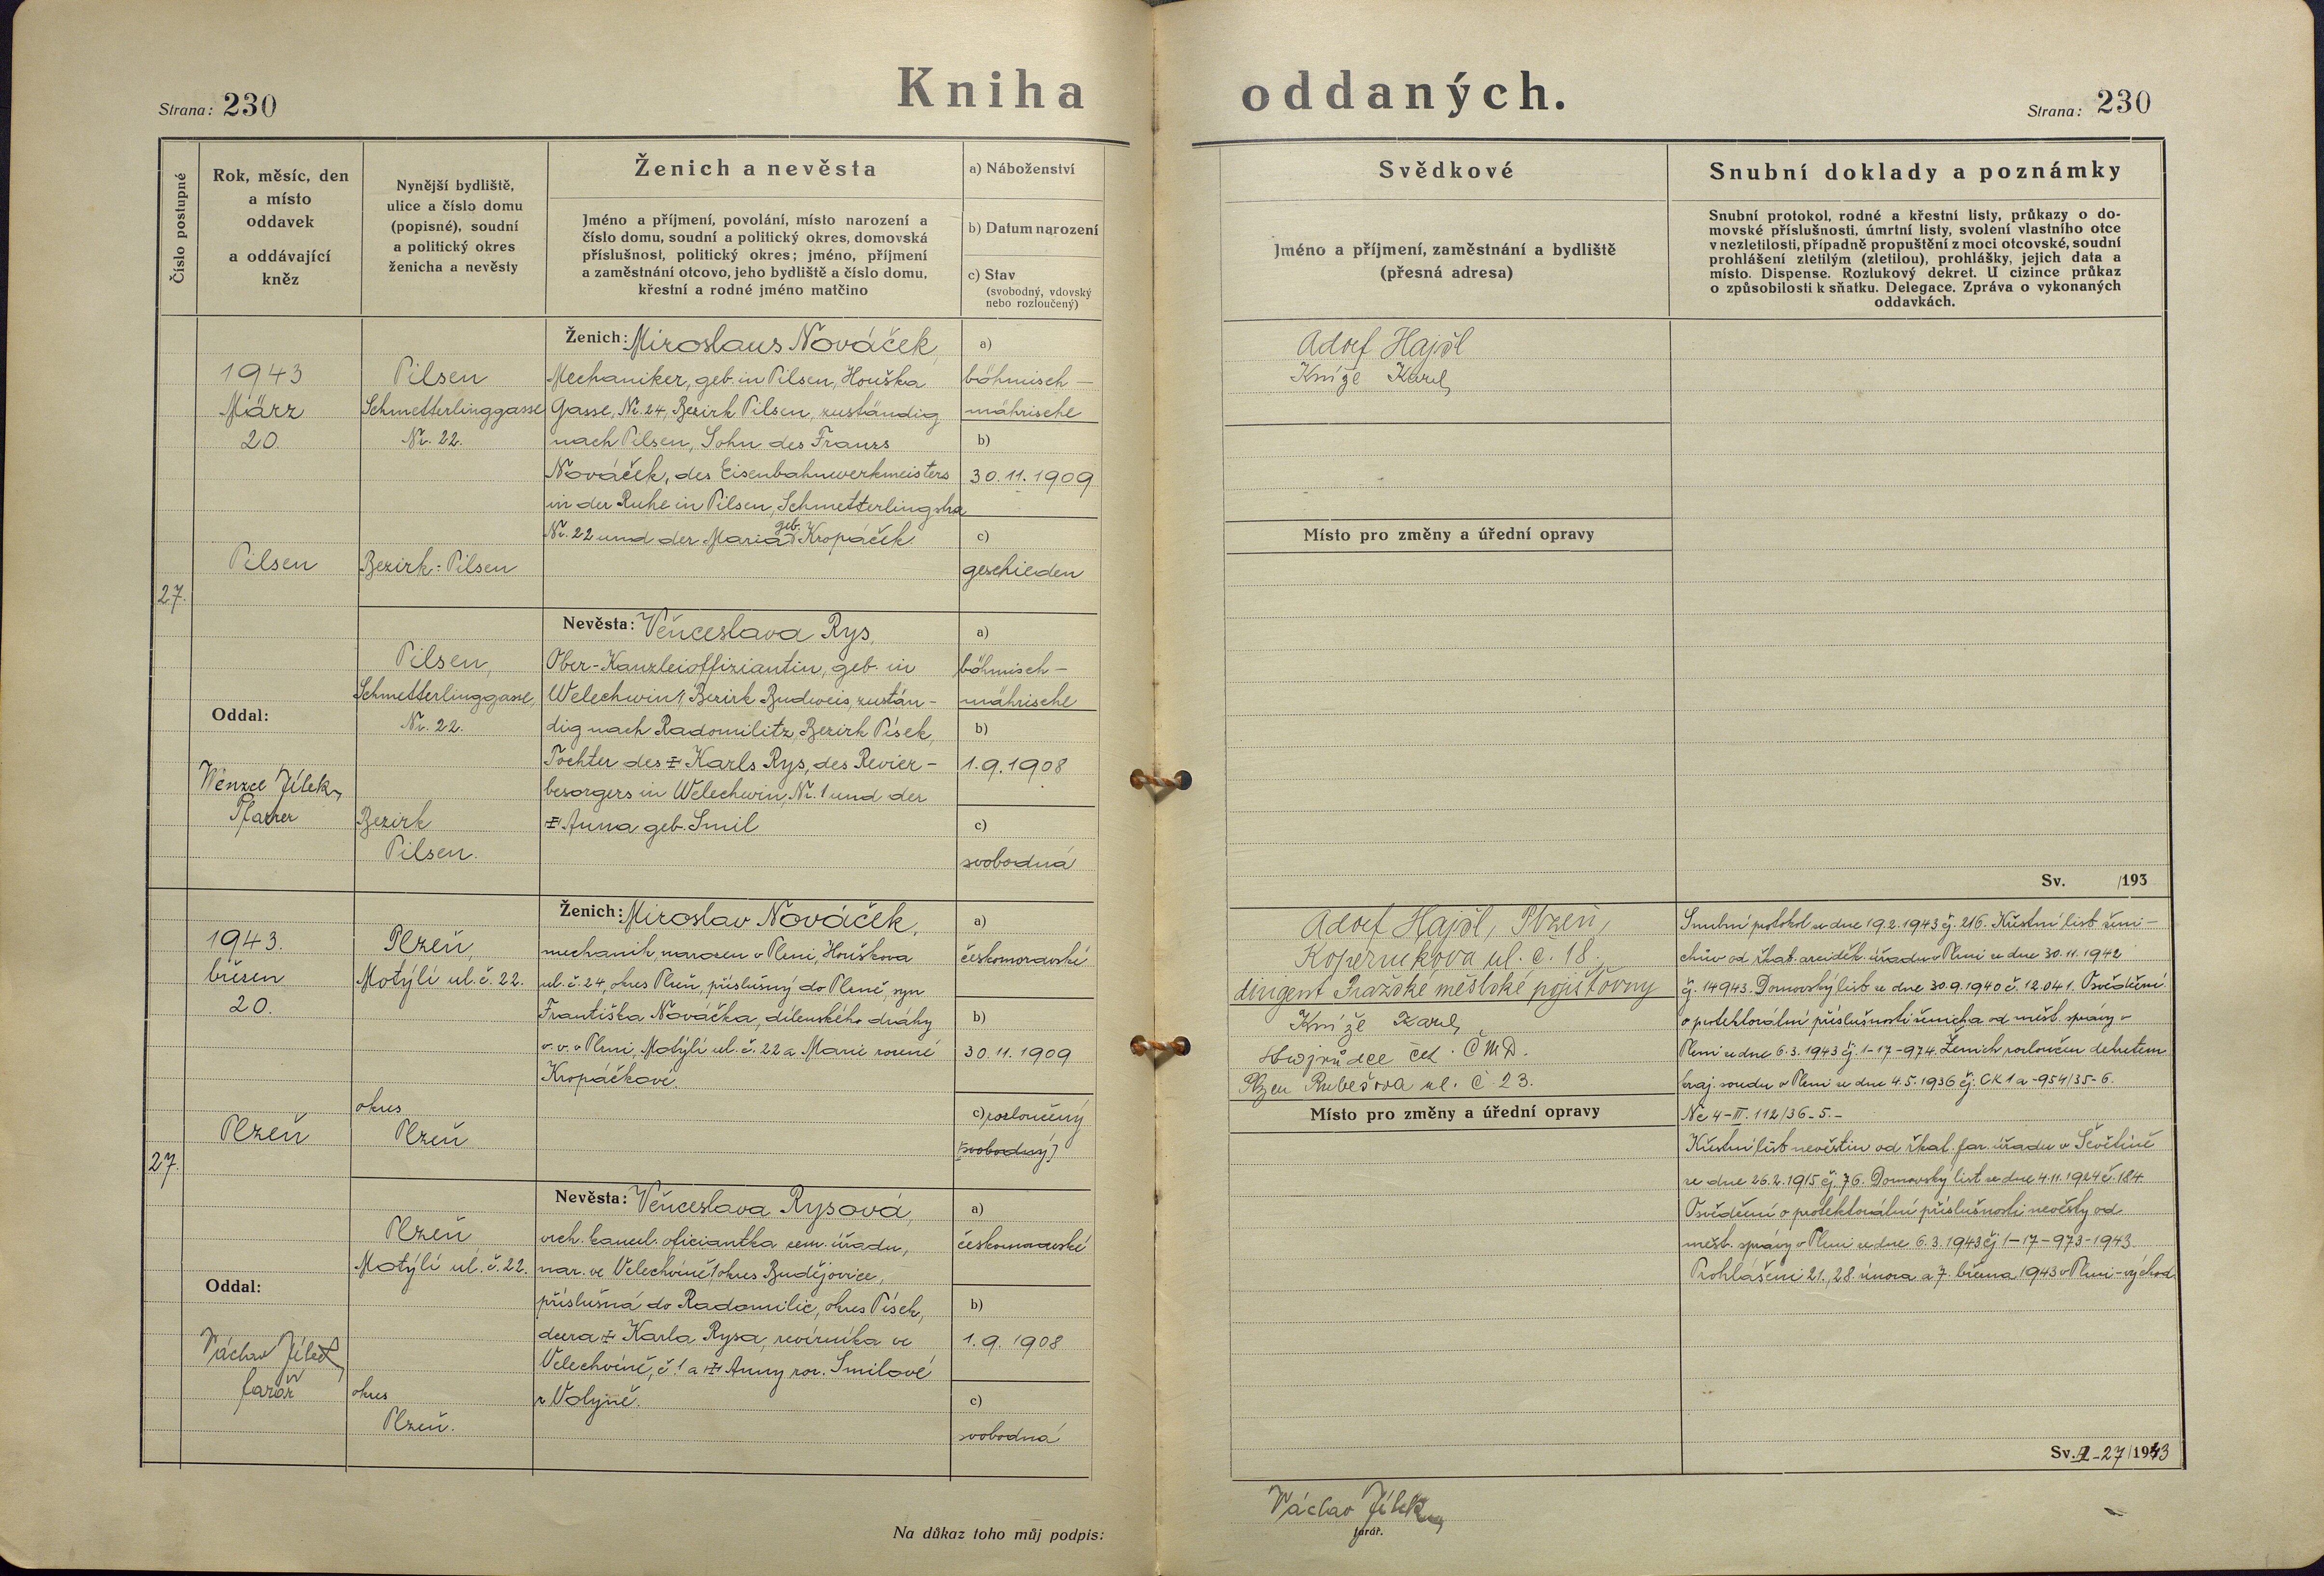 Strana: 230
Kniha oddaných.
Strana: 230
Číslo postupné
Rok, měsíc, den
a místo
oddavek
a oddávající
kněz
Nynější bydliště,
ulice a číslo domu
(popisné), soudní
a politický okres
ženicha a nevěsty
Ženich a nevěsta
Jméno a příjmení, povolání, místo narození a
číslo domu, soudní a politický okres, domovská
příslušnost, politický okres; jméno, příjmení
a zaměstnání otcovo, jeho bydliště a číslo domu,
křestní a rodné jméno matčino
a) Náboženství
b) Datum narození
c) Stav
(svobodný, vdovský
nebo rozloučený)
Svědkové
Jméno a příjmení, zaměstnání a bydliště
(přesná adresa)
Snubní doklady a poznámky
Snubní protokol, rodné a křestní listy, průkazy o do-
movské příslušnosti, úmrtní listy, svolení vlastního otce
v nezletilosti, případně propuštění z moci otcovské, soudní
prohlášení zletilým (zletilou), prohlášky, jejich data a
místo. Dispense. Rozlukový dekret. U cizince průkaz
o způsobilosti k sňatku. Delegace. Zpráva o vykonaných
oddavkách.
27.
1943
März
20.
Pilsen
Oddal:
Wenzel Jílek
Pfarrer
Pilsen
Schmetterlinggasse
Nr. 22.
Bezirk: Pilsen
Pilsen,
Schmetterlinggasse,
Nr. 22.
Bezirk
Pilsen.
Ženich: Miroslaus Nováček,
Mechaniker, geb. in Pilsen, Houška
Gasse, Nr. 24, Bezirk Pilsen, zuständig
nach Pilsen, Sohn des Franzs
Nováček, des Eisenbahnwerkmeisters
in der Ruhe in Pilsen, Schmetterlingstra
Nr. 22 und der Maria geb. Kropáček.
a)
böhmisch-
mährische
b)
30.11.1909
c)
geschieden
Nevěsta: Věnceslava Rys,
Ober-Kanzleioffiziantin, geb. in
Welechwin 1, Bezirk Budweis, zustän-
dig nach Radomilitz, Bezirk Písek,
Tochter des ‡ Karls Rys, des Revier-
besorgers in Welechwin, Nr. 1 und der
‡ Anna geb. Smil
a)
böhmisch-
mährische
b)
1.9.1908
c)
svobodná
Adolf Hajšl
Kníže Karel
Místo pro změny a úřední opravy
Sv. /193
27.
1943.
březen
20.
Plzeň
Oddal:
Václav Jílek
farář
Plzeň,
Motýlí ul. č. 22.
okres
Plzeň
Plzeň
Motýlí ul. č. 22.
okres
Plzeň.
Ženich: Miroslav Nováček,
mechanik, narozen v Plzni, Houškova
ul. č. 24, okres Plzeň, příslušný do Plzně, syn
Františka Nováčka, dílenského dráhy
v. v. v Plzni, Motýlí ul. č. 22 a Marie rozené
Kropáčkové.
a)
českomoravské
b)
30.11.1909
c) rozloučený
(svobodný)
Nevěsta: Věnceslava Rysová,
vrch. kancel. oficiantka zem. úřadu,
nar. ve Velechvíně 1 okres Budějovice,
příslušná do Radomilic, okres Písek,
dcera ‡ Karla Rysa, revírníka ve
Velechvíně, č. 1 a ‡ Anny roz. Smilové
z Volyně.
a)
českomoravské
b)
1.9.1908
c)
svobodná
Adolf Hajšl, Plzeň,
Koperníkova ul. č. 18.
dirigent Pražské městské pojišťovny
Kníže Karel
čet. ČMD.
Plzeň Rubešova ul. č 23.
Místo pro změny a úřední opravy
Snubní protokol ze dne 19.2.1943 čj. 216. Křestní list ženi-
chův od řkat. arciděk. úřadu v Plzni ze dne 30.11.1942
čj. 14943. Domovský list ze dne 30.9.1940 č. 12.041. Osvědčení
o protektorátní příslušnosti ženicha od měst. správy v
Plzni ze dne 6.3.1943 čj. 1-17-974. Ženich rozloučen dekretem
kraj. soudu v Plzni ze dne 4.5.1936 čj. CK 1a-954/35-6.
Nc 4-II. 112/36-5.-
Křestní list nevěstin od řkat. far. úřadu v Ševětíně
ze dne 26.2.1915 čj. 76. Domovský list ze dne 4.11.1924 č. 184.
Osvědčení o protektorátní příslušnosti nevěsty od
měst. správy v Plzni ze dne 6.3.1943 čj. 1-17-973-1943.
Prohlášení 21., 28. února a 7. března 1943 v Plzni-východ.
Sv. A-27/1943
Na důkaz toho můj podpis:
Václav Jílek
farář.